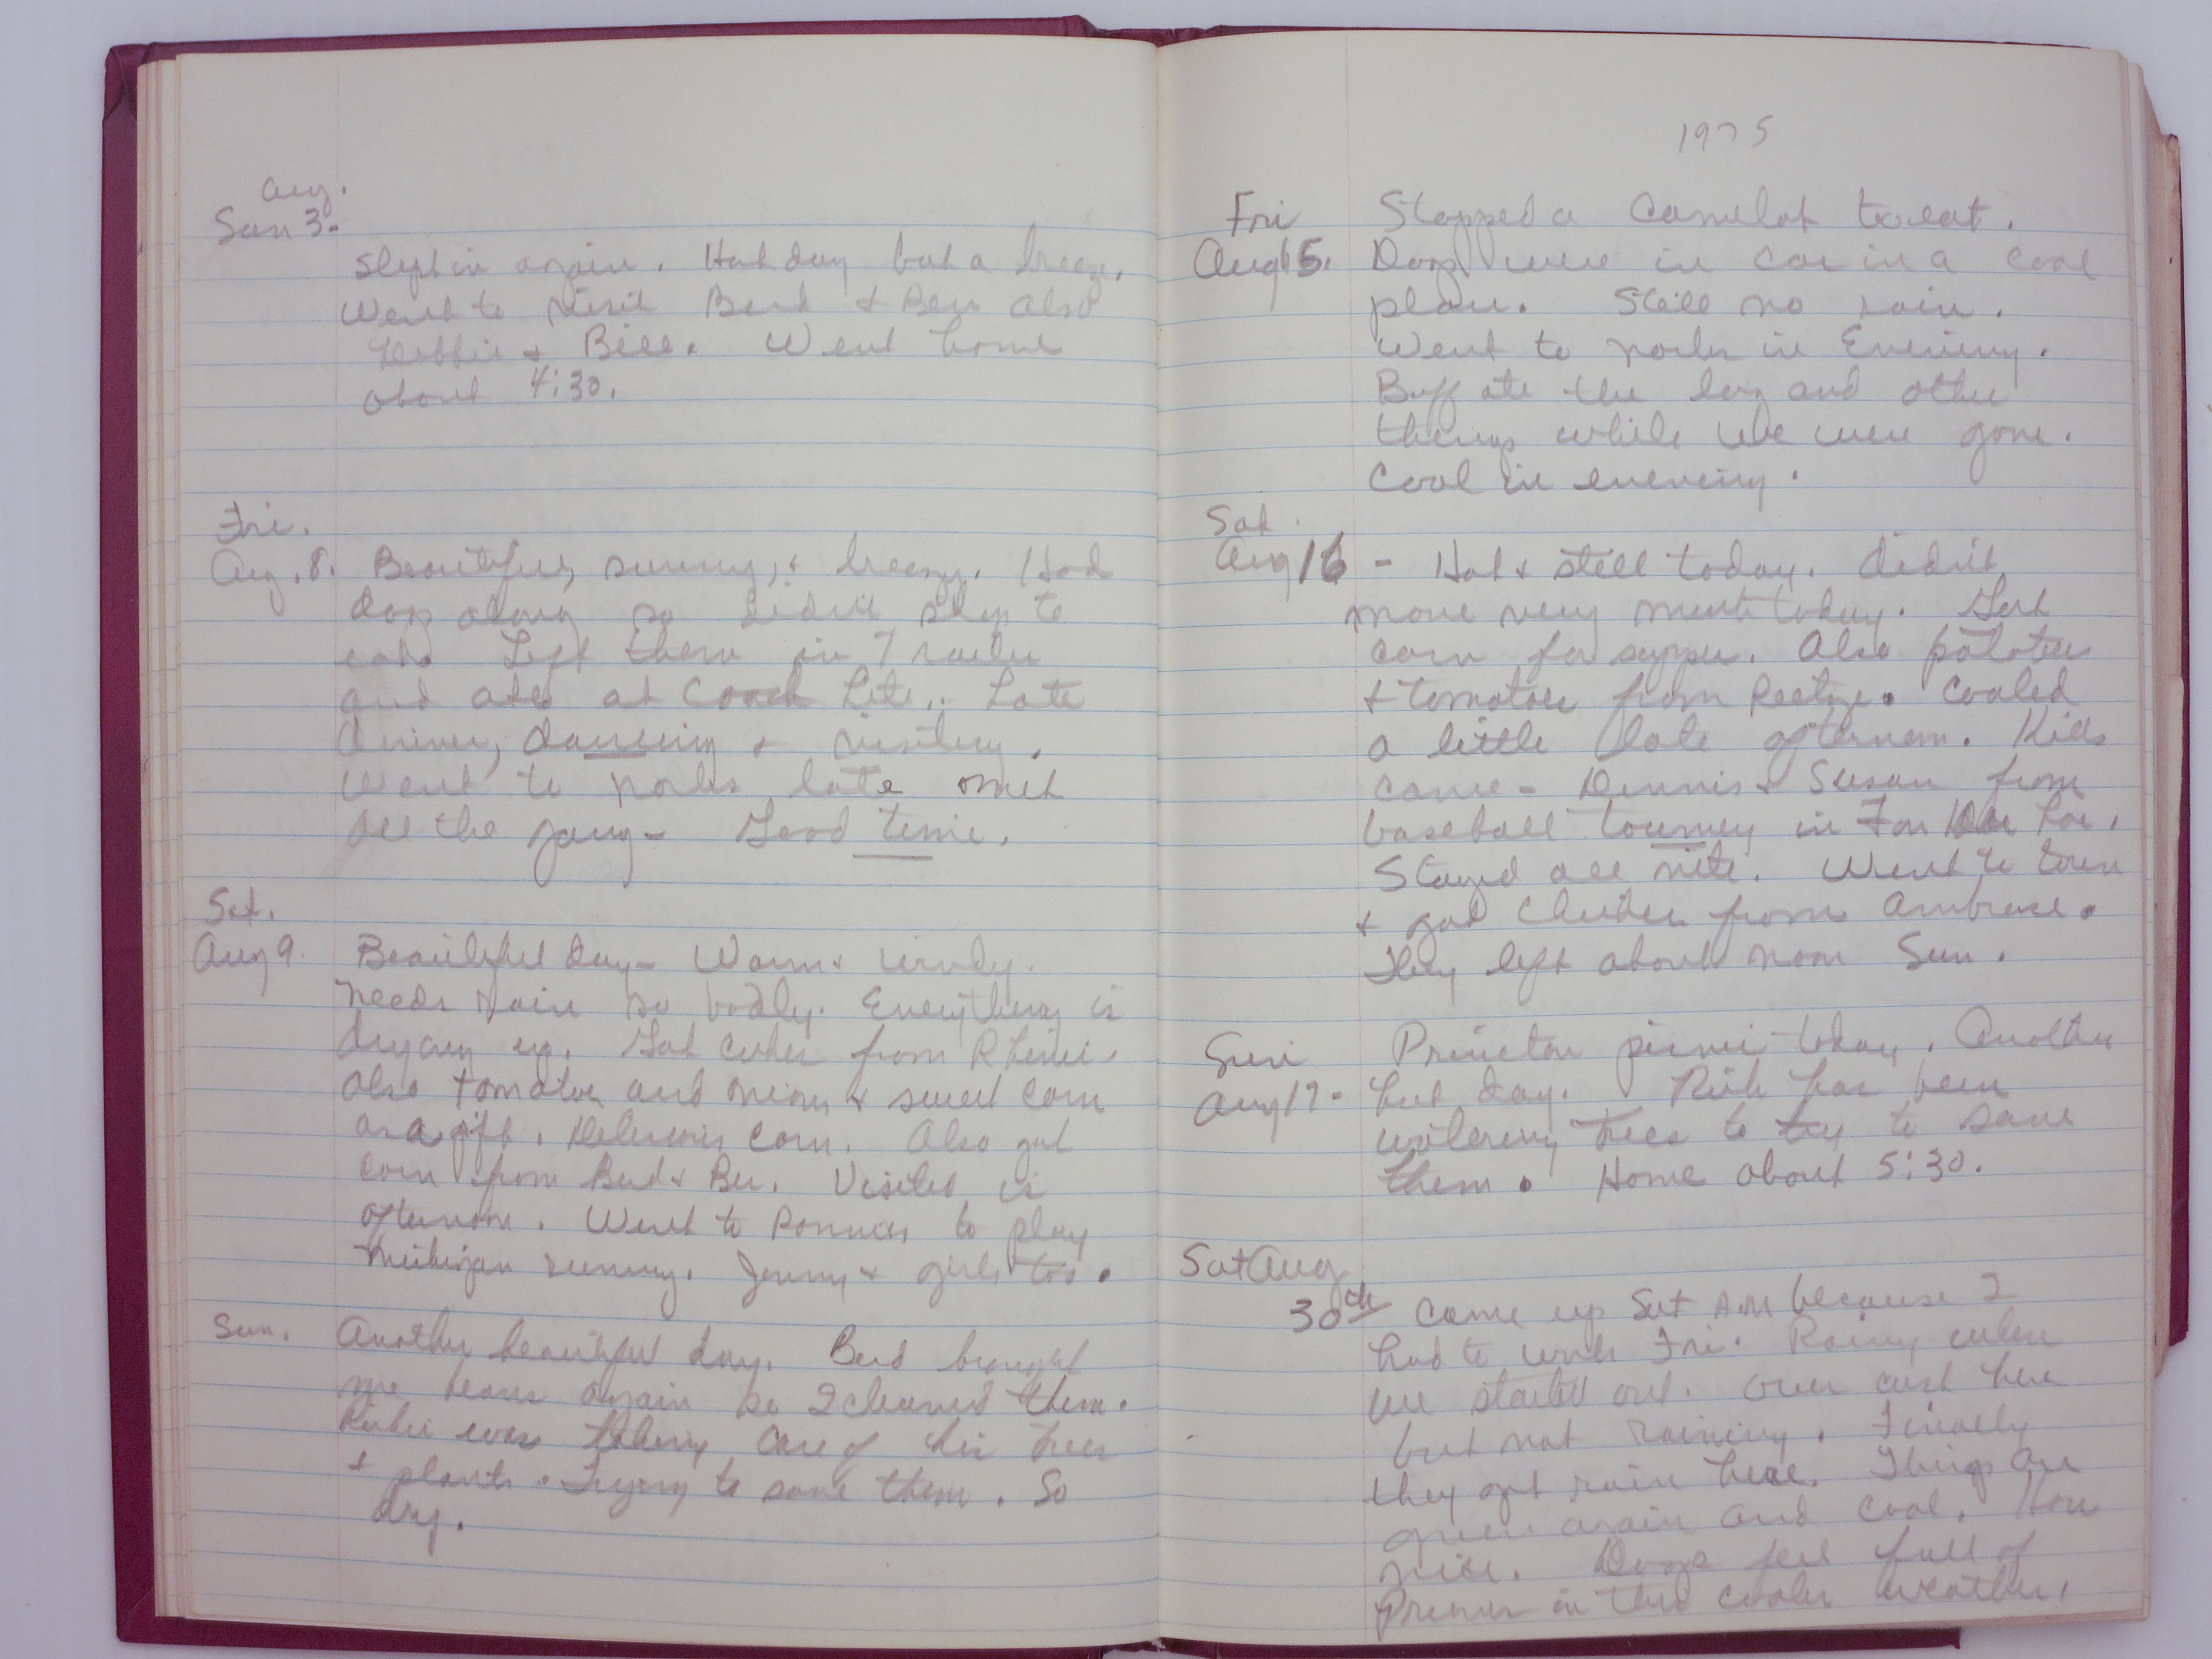 Aug.
Sun 3.
Slept in again. Hot day but a breeze.
Went to visit Bud & Bev also
Debbie & Bill. Went home
about 4:30.
Fri.
Aug. 8. Beautiful, sunny, & breezy. Had
dogs along so didn't stop to
eat. Left them in Trailer
and ate at Coach Lite.. Late
dinner, dancing & visiting.
Went to Norbs late met
all the gang - Good time.
Sat.
Aug 9. Beautiful day - Warm & windy.
Needs rain so badly. Everything is
drying up. Got cukes from
also tomatoes and onions & sweet corn
as a gift. Delicious corn. Also got
corn from Bud & Bev. Visited in
afternoon. Went to Ronnies to play
Michigan rummy. Jenny & girls too.
Sun. Another beautiful day. Bud brought
me beans again so I cleaned them.
Richie was taking care of his trees
& plants. Trying to save them. So
dry.
1975
Fri Stopped a Camelot to eat.
Aug 15. Dogs were in car in a cool
place. Still no rain.
Went to Norbs in Evening.
Buff ate the and other
things while we were gone.
Cool in evening.
Sat.
Aug 16 - Hot & still today. Didn't
move very much today. Got
corn for supper. Also potatoes
& tomatoes from. Cooled
a little late afternoon. Kids
came - Dennis & Susan from
baseball tourney in Fon Du Lac.
Stayed all nite. Went to town
& got from Ambrose.
They left about noon Sun.
Sun Princeton picnic today. Another
Aug 17 - hot day. Rich has been
watering trees to try to save
them. Home about 5:30.
Sat Aug
30th Came up Sat A.M because I
had to work Fri. Rainy when
we started out. Over cast here
but not raining. Finally
they got rain here. Things are
green again and cool. How
nice. Dogs feel full of
in this cooler weather.